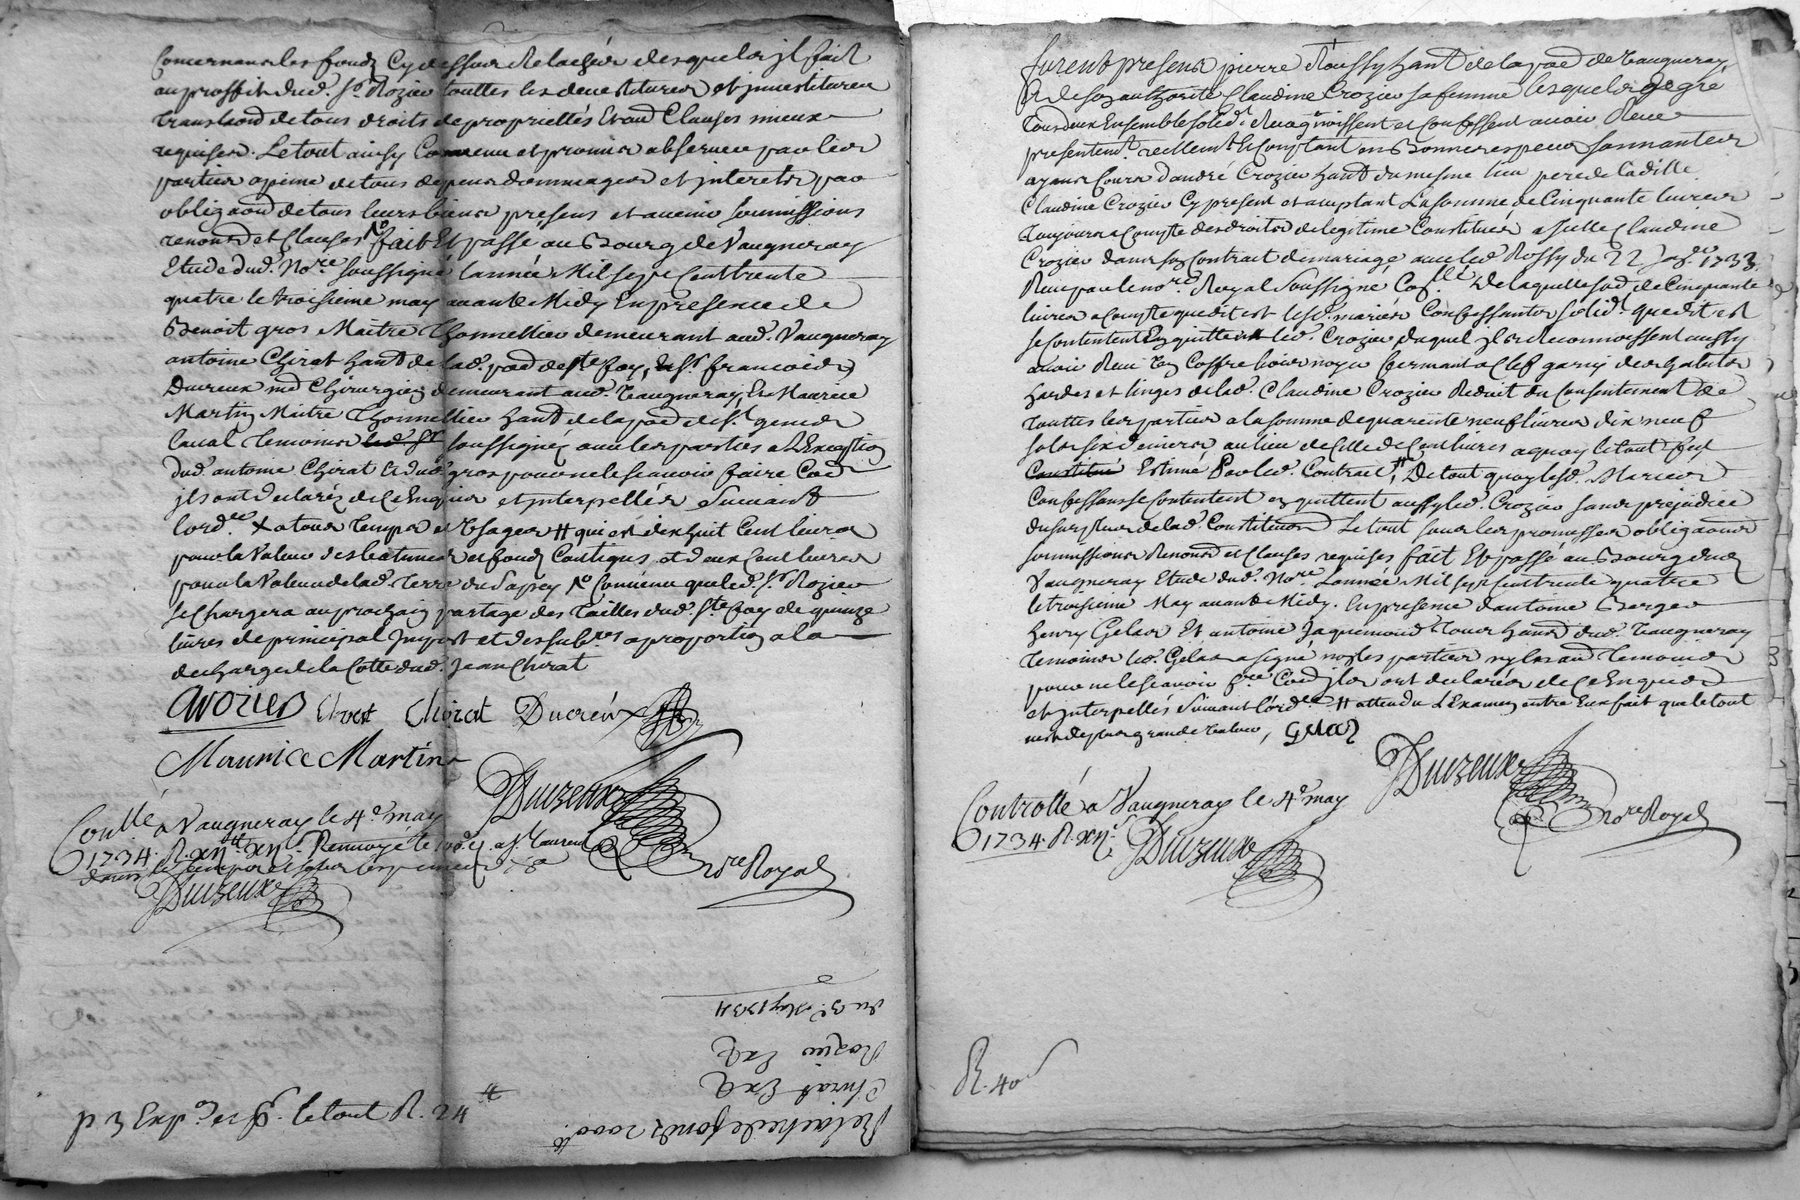 Concernant les fonds Cy dessus Relachés desquels jl fait
au proffit dud. Sr. Rozier touttes les devestitures et jnvestitures
translaõn de tous droits de proprietés Et aũ Clauses mieux
requises. Le tout ainsy Convenu et promis observer par les
parties a peine de tous depens dommages et jnterets par
obligaõn de tous leurs biens présens et avenir soumissions
renonõns et Clauses fait Et passé au Bourg de Vaugneray
Etude dud. Nore. soussigné L'année Mil sept Cent trente
quatre le troisieme may avant Midy En presence de
Benoit gros Maitre Thonnellier demeurant aud. Vaugneray
antoine Chirat habt. de lad. par. de Ste foy, françois
Ducreux me Chirurgien demeurant aud. Vaugneray, Et Maurice
Martin Maitre Thonnellier habt. de la par. de St. genis
Laval temoins soussignés avec les parties a L'Exception
dud. antoine Chirat Et dud. gros pour ne le sçavoir faire Co͠e
jls ont declarés de ce Enquis et interpellés suivant
l'ordce. X a tous temps et Usages # qui est dixhuit Cent livres
pour la Valeur des batimens et fonds Contigus, et deux Cent livres
pour la Valeur de lad. terre du Sapey Convenu que led. Sr. Rozier
se Chargera au prochain partage des tailles dud. Ste foy de quinze
livres de principal jmpost et des sub.res a proportion a la
decharge de la Cotte dud. Jean Chirat
Chirat Ducreux
Maurice Martin
Duizeux
nore Royal
Conllé a Vaugneray le 4e may
1734. R. Renvoyé le a St. Laurent
Duizeux
Relache de fonds 2000lt
Chirat
Rozier
du 3e May 1734
le tout R. 24
furent presens pierre Roussy habt. de la par. de Vaugneray
Et de son authorité Claudine Crozier sa femme lesquels de gré
tous deux Ensemble solid. Recognoissent et Confessent avoir Receu
presentemt. reellemt. Et Comptant En Bonnes especes sonnantes
ayans Cours d'andré Crozier habt. du mesme lieu pere de laditte
Claudine Crozier Cy present et acceptant La somme de Cinquante livres
toujours a Compte des droits de legitime Constitués a jcelle Claudine
Crozier dans son Contrat de mariage avec led. Rossy du 22 1733
Receu par le nore. Royal soussigné de laquelle somme de Cinquante
livres a Compte que dit est lesd. mariés Confessants solidt. que dit est
se Contentent En quittent led. Crozier duquel jls Reconnoissent aussy
avoir Receu Un Coffre bois noyer fermant a Clef garny des habits
hardes et linges de lad. Claudine Crozier Reduit du Consentement de
touttes les parties a la somme de quarente neuf livres dix neuf
sols six deniers, au lieu de Celle de Cent livres a quoy le tout fut
Constitué Estimé Par led. Contract #, De tout quoy lesd. Mariés
Confessans se Contentent en quittent aussy led. Crozier sans prejudice
du surplus de lad. Constitution Le tout sous les promesses obligaõns
soumissions Renonõns et Clauses requises fait Et passé au Bourg dud.
Vaugneray Etude dud. Nore. L'année Mil sept Cent trente quatre
le troisieme May avant Midy. En presence d'antoine Berger
henry Gelas Et antoine Jaquemond tous habts. dud. Vaugneray
temoins led. Gelas a signé non les parties ny les autres temoins
pour ne le sçavoir fre. Co͠e jls ont declarés de ce Enquis
et jnterpellés suivant l'ordce. # attendu L'Examen entre Eux fait que le tout
n'est de plus grande valeur, Gelas
Duizeux
nore Royal
Controllé a Vaugneray le 4e may
1734. R. xn s.
Duizeux
R. 40